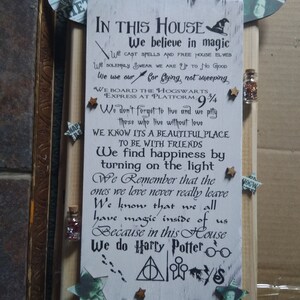 IN THIS HOUSE
We believe in magic
WE CAST SPELLS AND FREE HOUSE ELVES
WE SOLEMNLY SWEAR WE ARE UP TO NO GOOD
We use our for flying, not sweeping
WE BOARD THE HOGSWARTS
EXPRESS AT PLATFORM 9 3/4
We don't forget to live and we pity
those who live without love
WE KNOW ITS A BEAUTIFUL PLACE
TO BE WITH FRIENDS
We find happiness by
turning on the light
We Remember that the
ones we love never really leave
We know that we all
have magic inside of us
Because in this House
We do Harry Potter